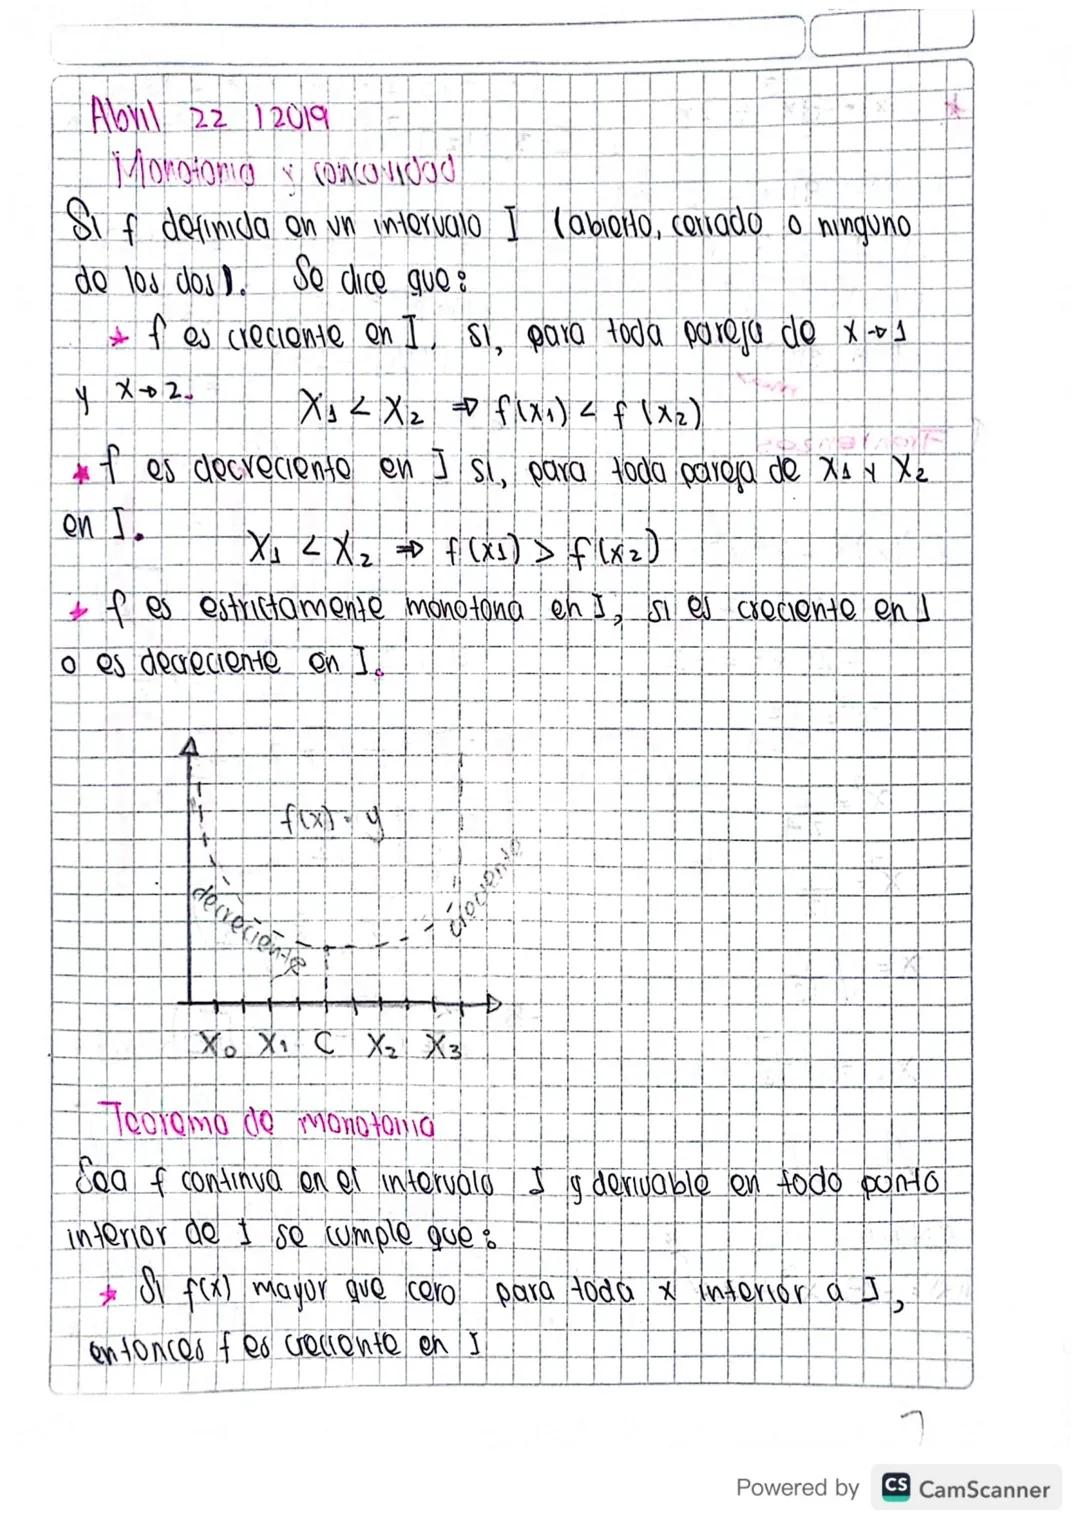 Abril 22 | 2019
Monotonia y concavidad
Si f definida en un intervalo I (abierto, cerrado o ninguno
de los dos). Se dice que:
* f es creciente en I, si, para toda pareja de x→1
y x→2.
X1 < X2 ⇒ f(x1) < f(x2)
* f es decreciente en I si, para toda pareja de X1 y X2
en I.
X1 < X2 ⇒ f(x1) > f(x2)
* f es estrictamente monotona en I, si es creciente en I
o es decreciente en I.
f(x) = y
decreciente
creciente
X0 X1 C X2 X3
Teorema de monotonia
Sea f continua en el intervalo I y derivable en todo punto
interior de I se cumple que:
* Si f(x) mayor que cero para toda x interior a I,
entonces f es creciente en I
7
Powered by CS CamScanner